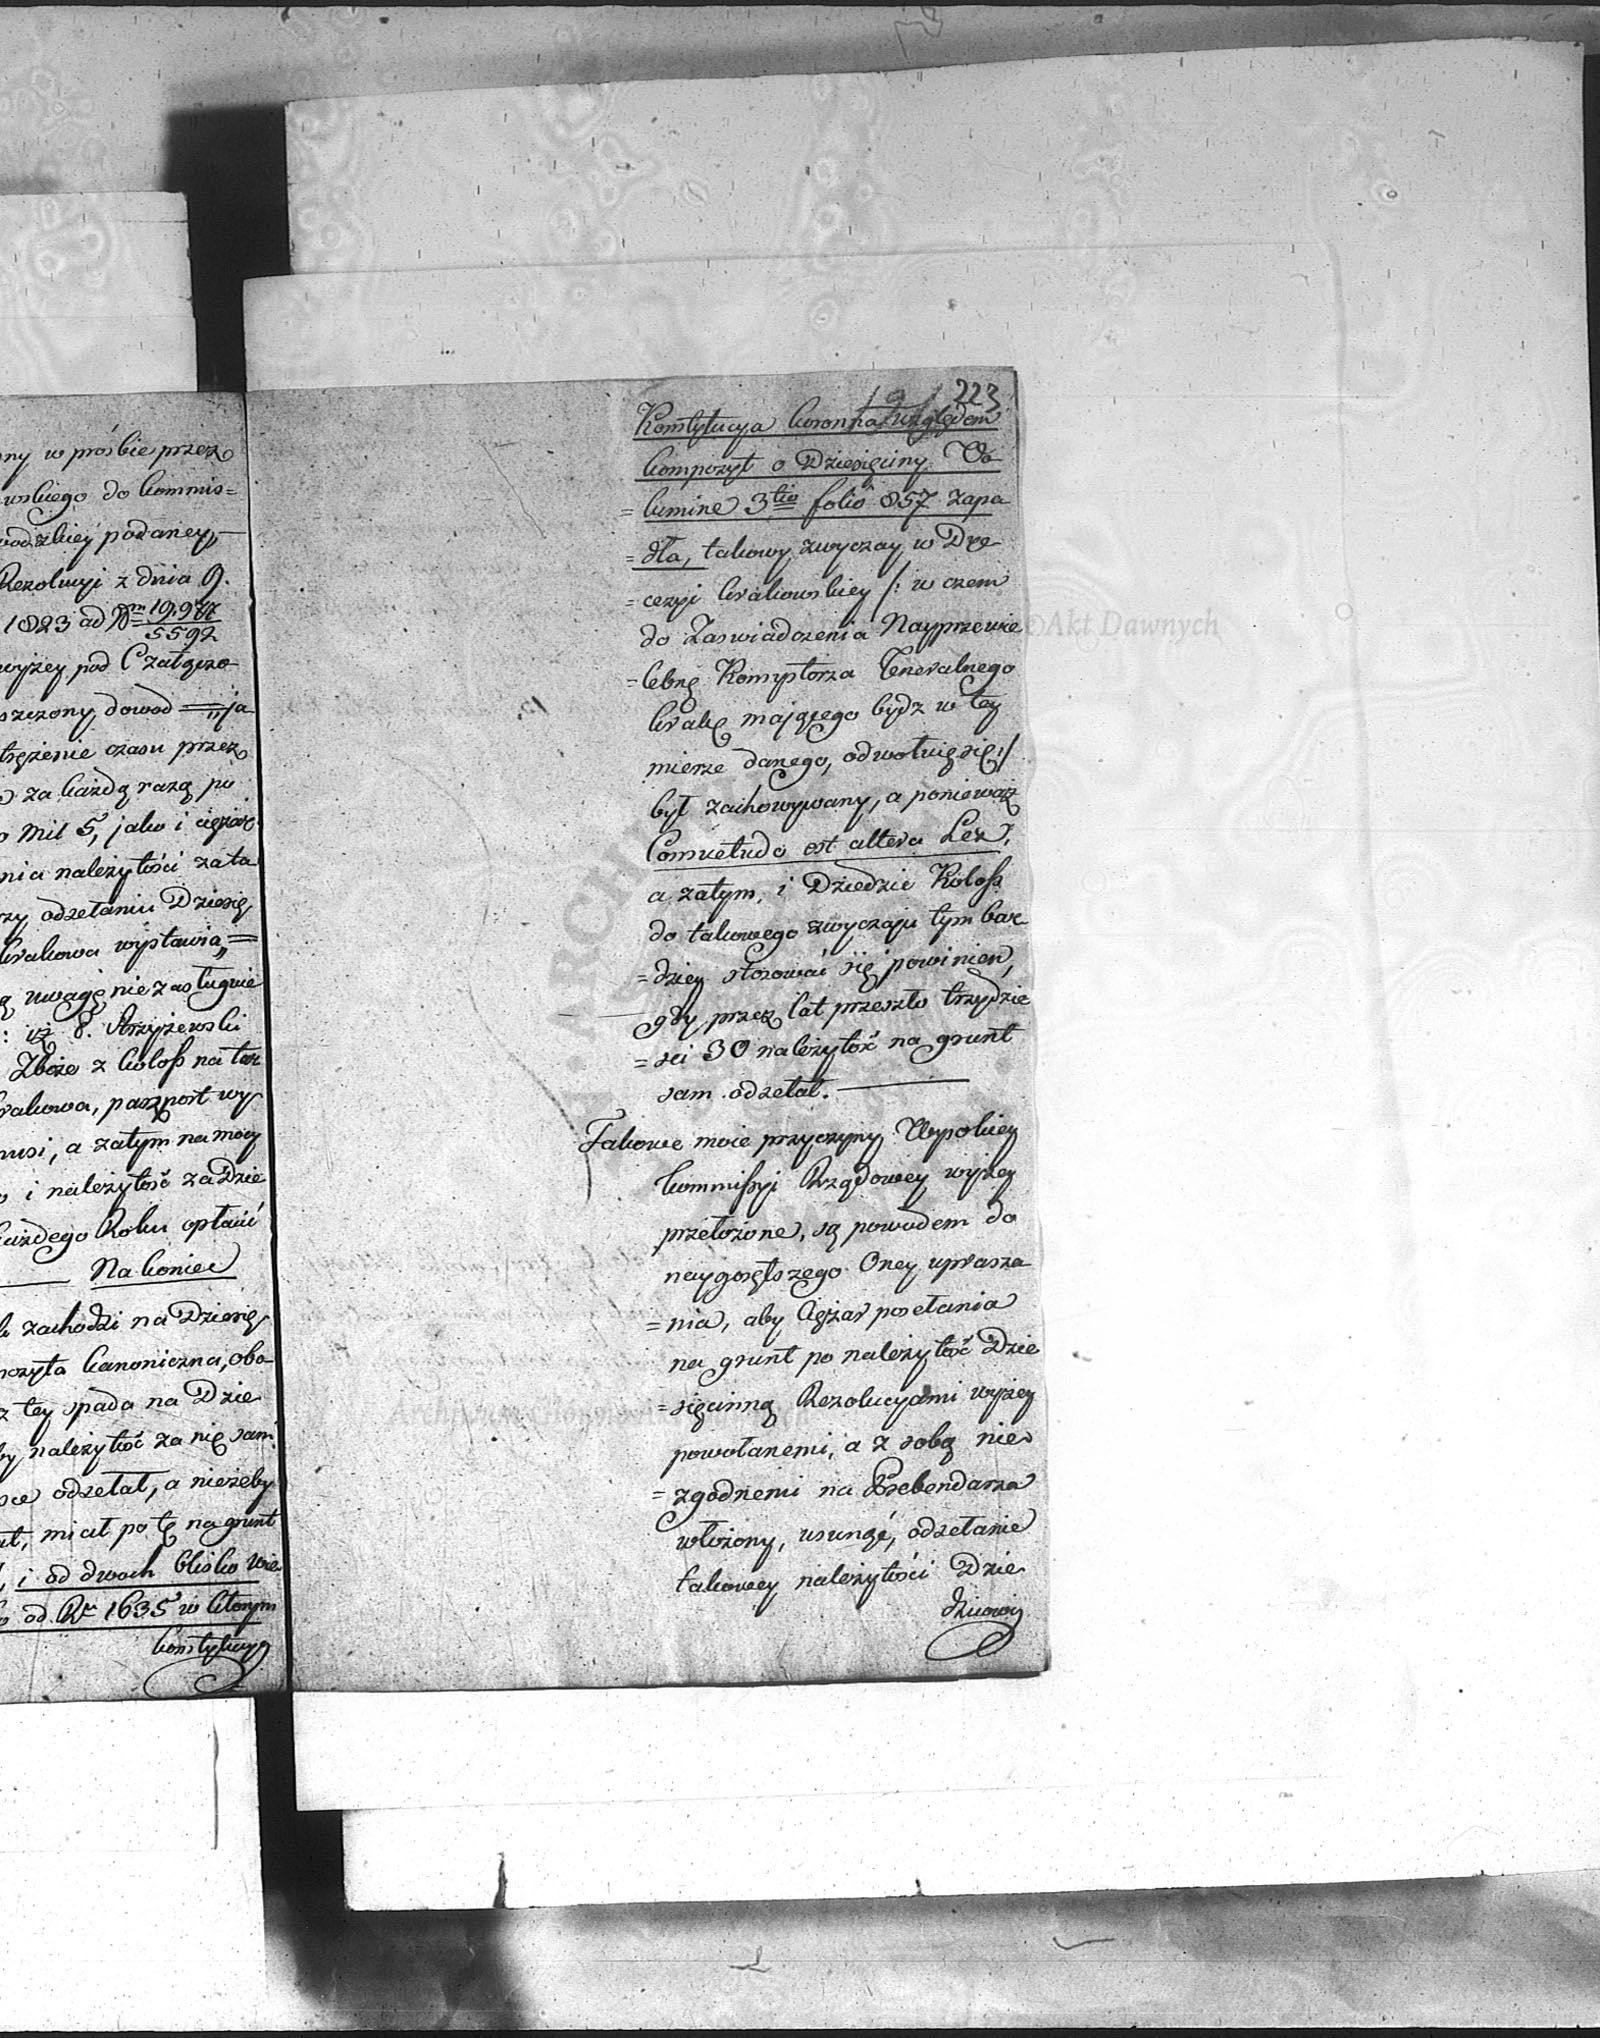 ny w prośbie przez
wskiego do kommis=
wodzkiey podaney,,
Rezolucyi z dnia 9.
1823 ad Nm 19.977
5592
wyżey pod C załączo
szczony dowod = „ja
tężenie czasu przez
za każdą razą po
mil 5, jako i ciężar
nia należytości za ta
rzy odsełaniu Dziesię
krakowa wystawia,,=
uwagę nie zasługuie
: iż P. Strzyżewski
Zboże z koloß na tar
rakowa, paszport wy
musi, a zatym na mocy
i należytość za Dzie
każdego Roku opłacić
Na koniec
zachodzi na Dziesię
pozyta kanoniczna, obo
z tey spada na Dzie
by należytość za nię sam
sce odsełał, a nieżeby
miał po tę na grunt
i od dwoch blisko wie
od Ru 1635 w ktorym
konstytucya
223
Konstytucya koronna względem
kompozyt o Dziesięciny Vo
= lumine 3tio folio 857 zapa
= dła, takowy zwyczay w Dye
= cezyi krakowskiey /: w czem
do Zaswiadczenia Nayprzewie
= lebnę Komysłorza Generalnego
krakę mającego bydz w tey
mierze danego, odwołuię się :/
był zachowywany, a ponieważ
Consuetudo est altera Lex,
a zatym, i Dziedzic Koloß
do takowego zwyczaju tym bar
= dziey stosować się powinien,
gdy przez lat przeszło trzydzie
= sci 30 należytość na grunt
sam odsełał.
Takowe moie przyczyny Wysokiey
kommißyi Rządowey wyżey
przełożone, są powodem do
naygorętszego Oney uprasza
= nia, aby Ciężar posełania
na grunt po należytość Dzie
= sięcinną Rezolucyami wyżey
powołanemi, a z sobą nie
= zgodnemi na Prebendarza
włożony, usunąć, odsełanie
takowey należytości Dzie
dzicowi
Akt Dawnych
Archiwum Główne Akt Dawnych